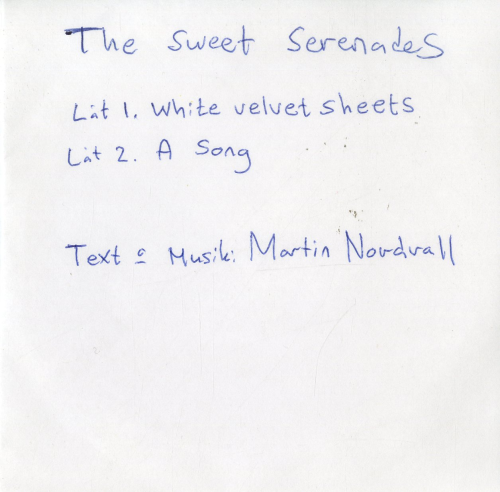 The Sweet Serenades
Låt 1. White velvet sheets
Låt 2. A Song
Text o Musik: Martin Nordvall